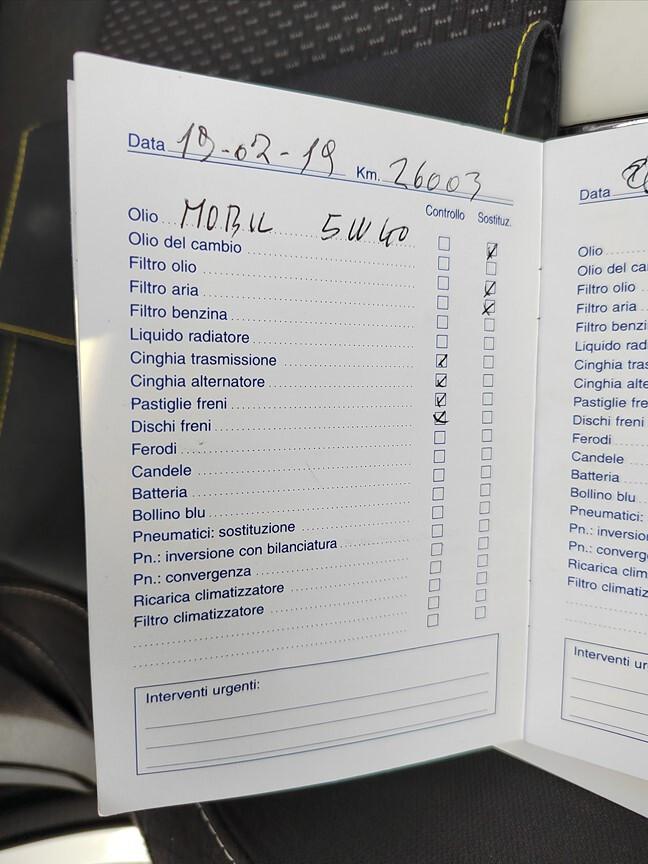 Data 19-02-19 Km. 26003
Controllo Sostituz.
Olio MOBIL 5W40
Olio del cambio
Filtro olio
Filtro aria
Filtro benzina
Liquido radiatore
Cinghia trasmissione
Cinghia alternatore
Pastiglie freni
Dischi freni
Ferodi
Candele
Batteria
Bollino blu
Pneumatici: sostituzione
Pn.: inversione con bilanciatura
Pn.: convergenza
Ricarica climatizzatore
Filtro climatizzatore
Interventi urgenti:
Data
Olio
Olio del ca
Filtro olio
Filtro aria
Filtro benzi
Liquido rad
Cinghia tras
Cinghia alte
Pastiglie fre
Dischi freni
Ferodi
Candele
Batteria
Bollino blu
Pneumatici:
Pn.: inversio
Pn.: converg
Ricarica clim
Filtro climatiz
Interventi ur